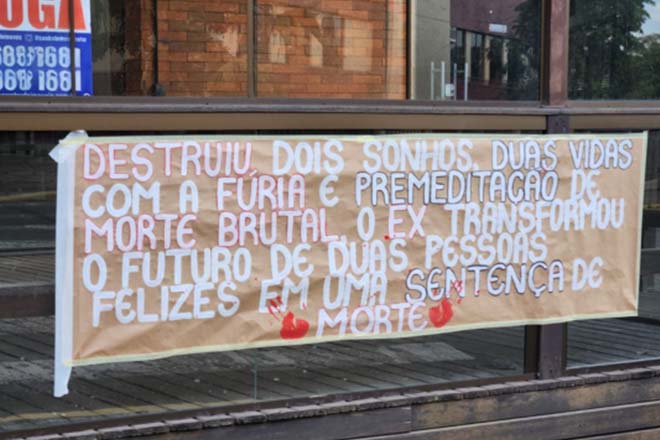 DESTRUIU DOIS SONHOS, DUAS VIDAS
COM A FÚRIA E PREMEDITAÇÃO DE
MORTE BRUTAL, O EX TRANSFORMOU
O FUTURO DE DUAS PESSOAS
FELIZES EM UMA SENTENÇA DE
MORTE